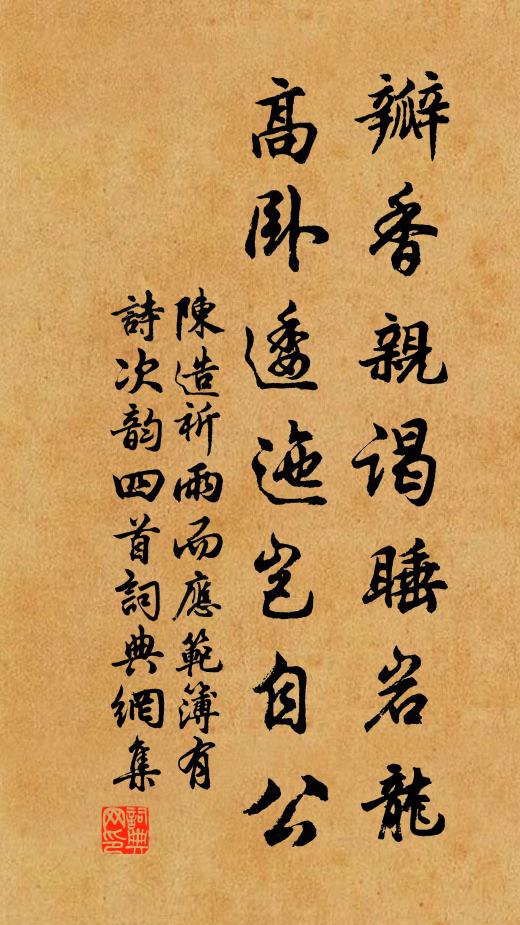 瓣香親谒睡岩龍
高卧逶迤岂自公
陳造祈雨而應範簿有
詩次韵四首詞典網集
詞典网印